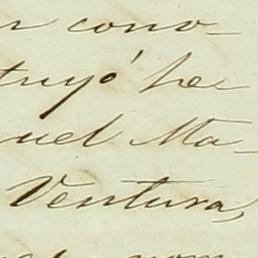 n cono-
truyó he
uel Ma-
Ventura,
nom